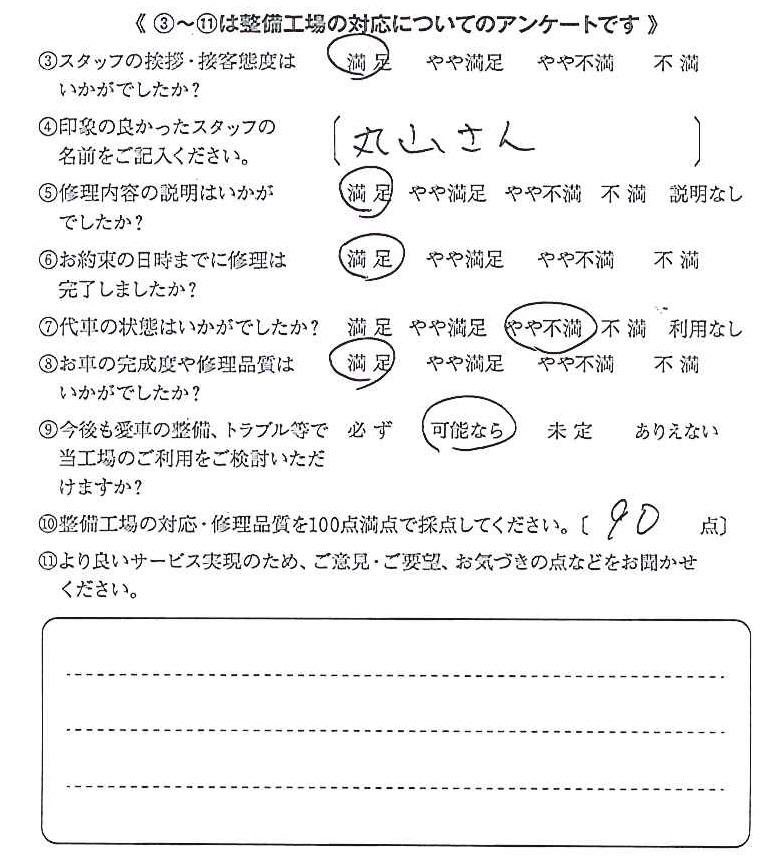 《 ③〜⑪は整備工場の対応についてのアンケートです 》
③スタッフの挨拶・接客態度は 満足 やや満足 やや不満 不満
いかがでしたか?
④印象の良かったスタッフの 〔丸山さん〕
名前をご記入ください。
⑤修理内容の説明はいかが 満足 やや満足 やや不満 不満 説明なし
でしたか?
⑥お約束の日時までに修理は 満足 やや満足 やや不満 不満
完了しましたか?
⑦代車の状態はいかがでしたか? 満足 やや満足 やや不満 不満 利用なし
⑧お車の完成度や修理品質は 満足 やや満足 やや不満 不満
いかがでしたか?
⑨今後も愛車の整備、トラブル等で 必ず 可能なら 未定 ありえない
当工場のご利用をご検討いただ
けますか?
⑩整備工場の対応・修理品質を100点満点で採点してください。〔 90 点〕
⑪より良いサービス実現のため、ご意見・ご要望、お気づきの点などをお聞かせ
ください。